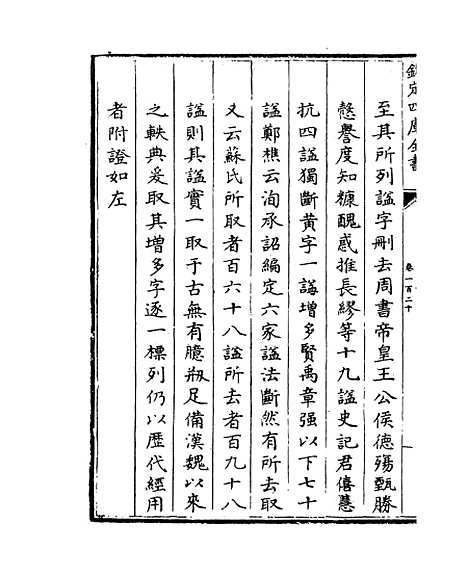 欽定四庫全書
卷一百二十
至其所列諡字刪去周書帝皇王公侯德殤甄勝
慤譽度知糠醜惑推長繆等十九諡史記君僖慧
抗四諡獨斷黃字一諡增多賢禹章强以下七十
諡鄭樵云洵承詔編定六家諡法斷然有所去取
又云蘇氏所取者百六十八諡所去者百九十八
諡則其諡實一取于古無有臆剏足備漢魏以來
之軼典爰取其增多字逐一標列仍以歷代經用
者附證如左